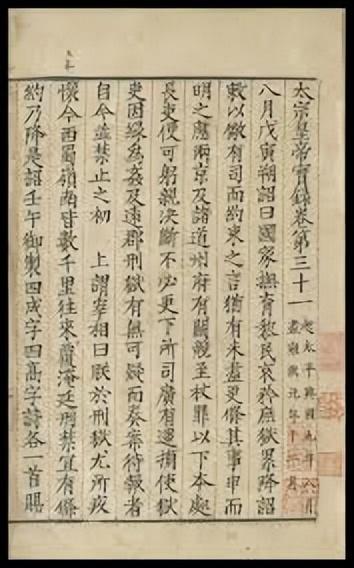 太宗皇帝實錄卷第三十一
起太平興國九年八月
盡雍熙元年十月
八月戊寅朔詔曰國家撫育黎民哀矜庶獄累降詔
敕以儆有司而約束之言猶有未盡更條其事申而
明之應兩京及諸道州府有鬬競至杖罪以下本處
長吏便可躬親決斷不必更下所司廣有追擾使獄
吏因緣為姦及遠郡刑獄有無可疑而奏案待報者
自今並禁止之初 上謂宰相曰朕於刑獄尤所疚
懷今西蜀嶺南皆數千里往來淹延刑禁宜有條
約乃降是詔壬午御製四成字四高字詩各一首賜